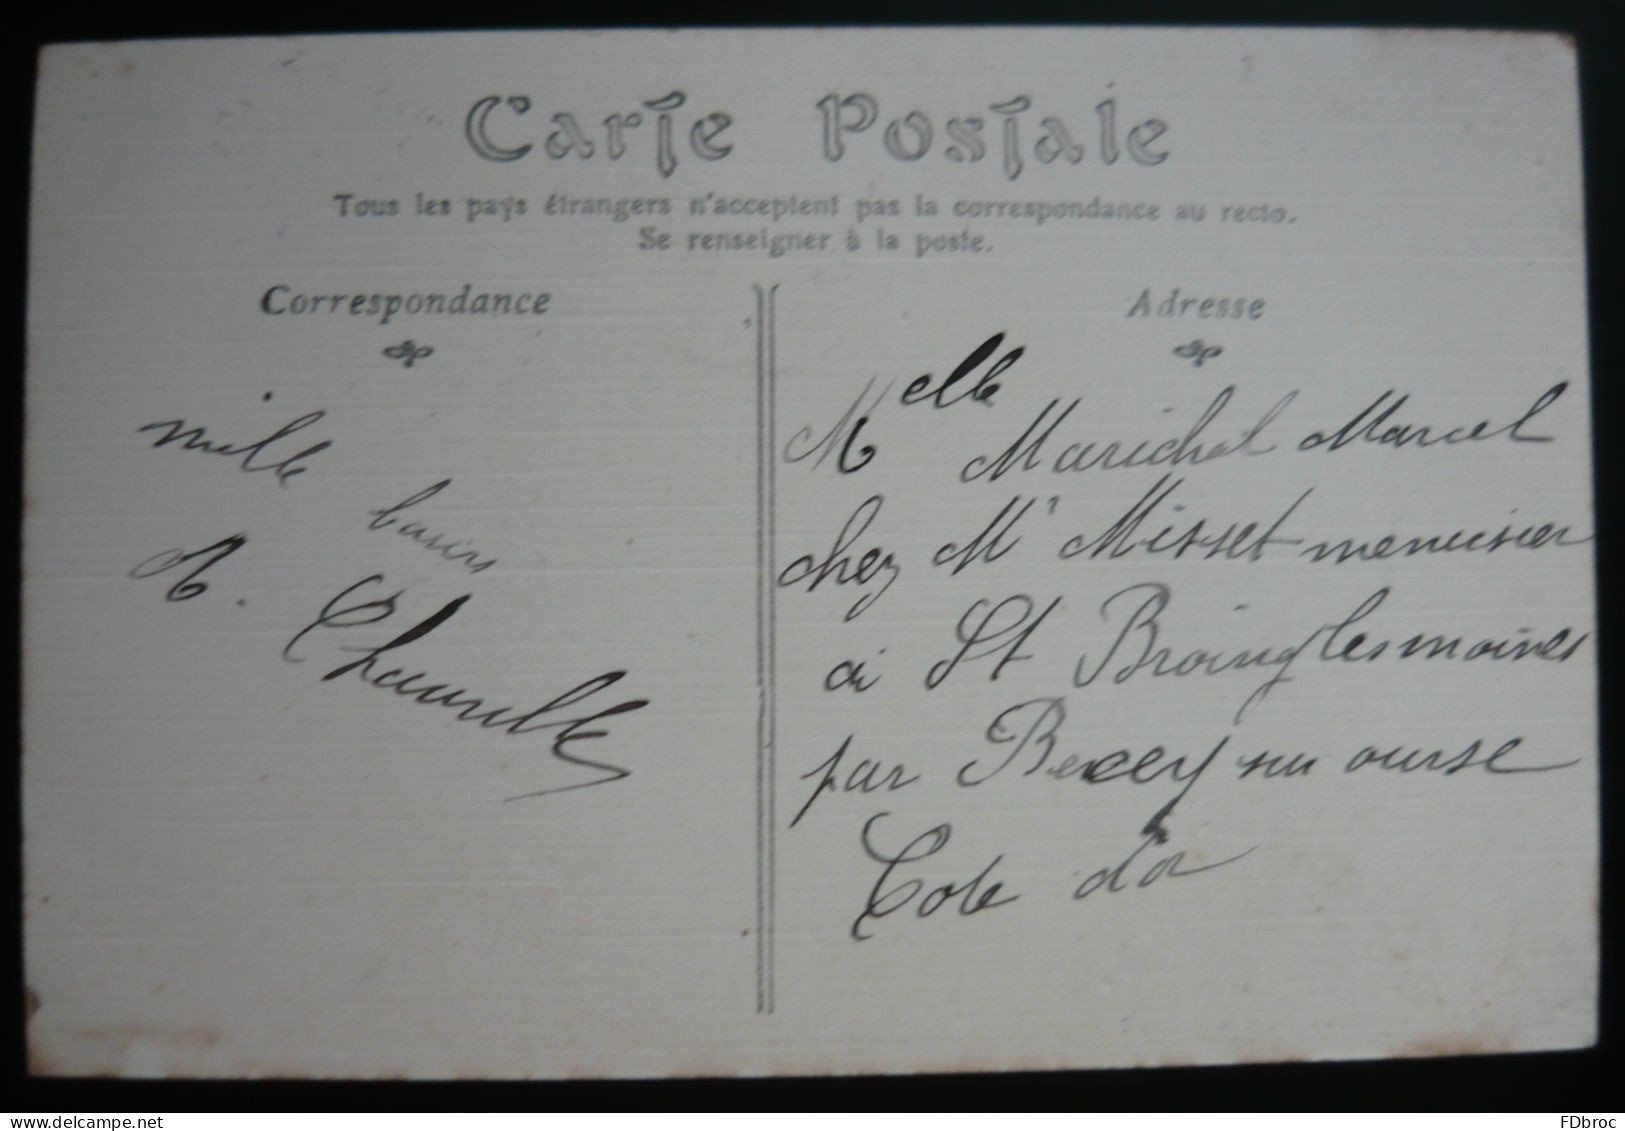 Carte Postale
Tous les pays étrangers n'acceptent pas la correspondance au recto.
Se renseigner à la poste.
Correspondance
mille
Adresse
Melle Marichal Marcel
chez Mr Misset menuisier
à St Broing les moines
par Recey sur ourse
Cote d'or
www.delcampe.net
FDbroc